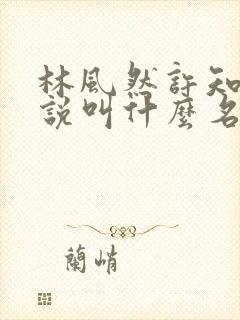 林風然許知
說叫什麼名
蘭峭